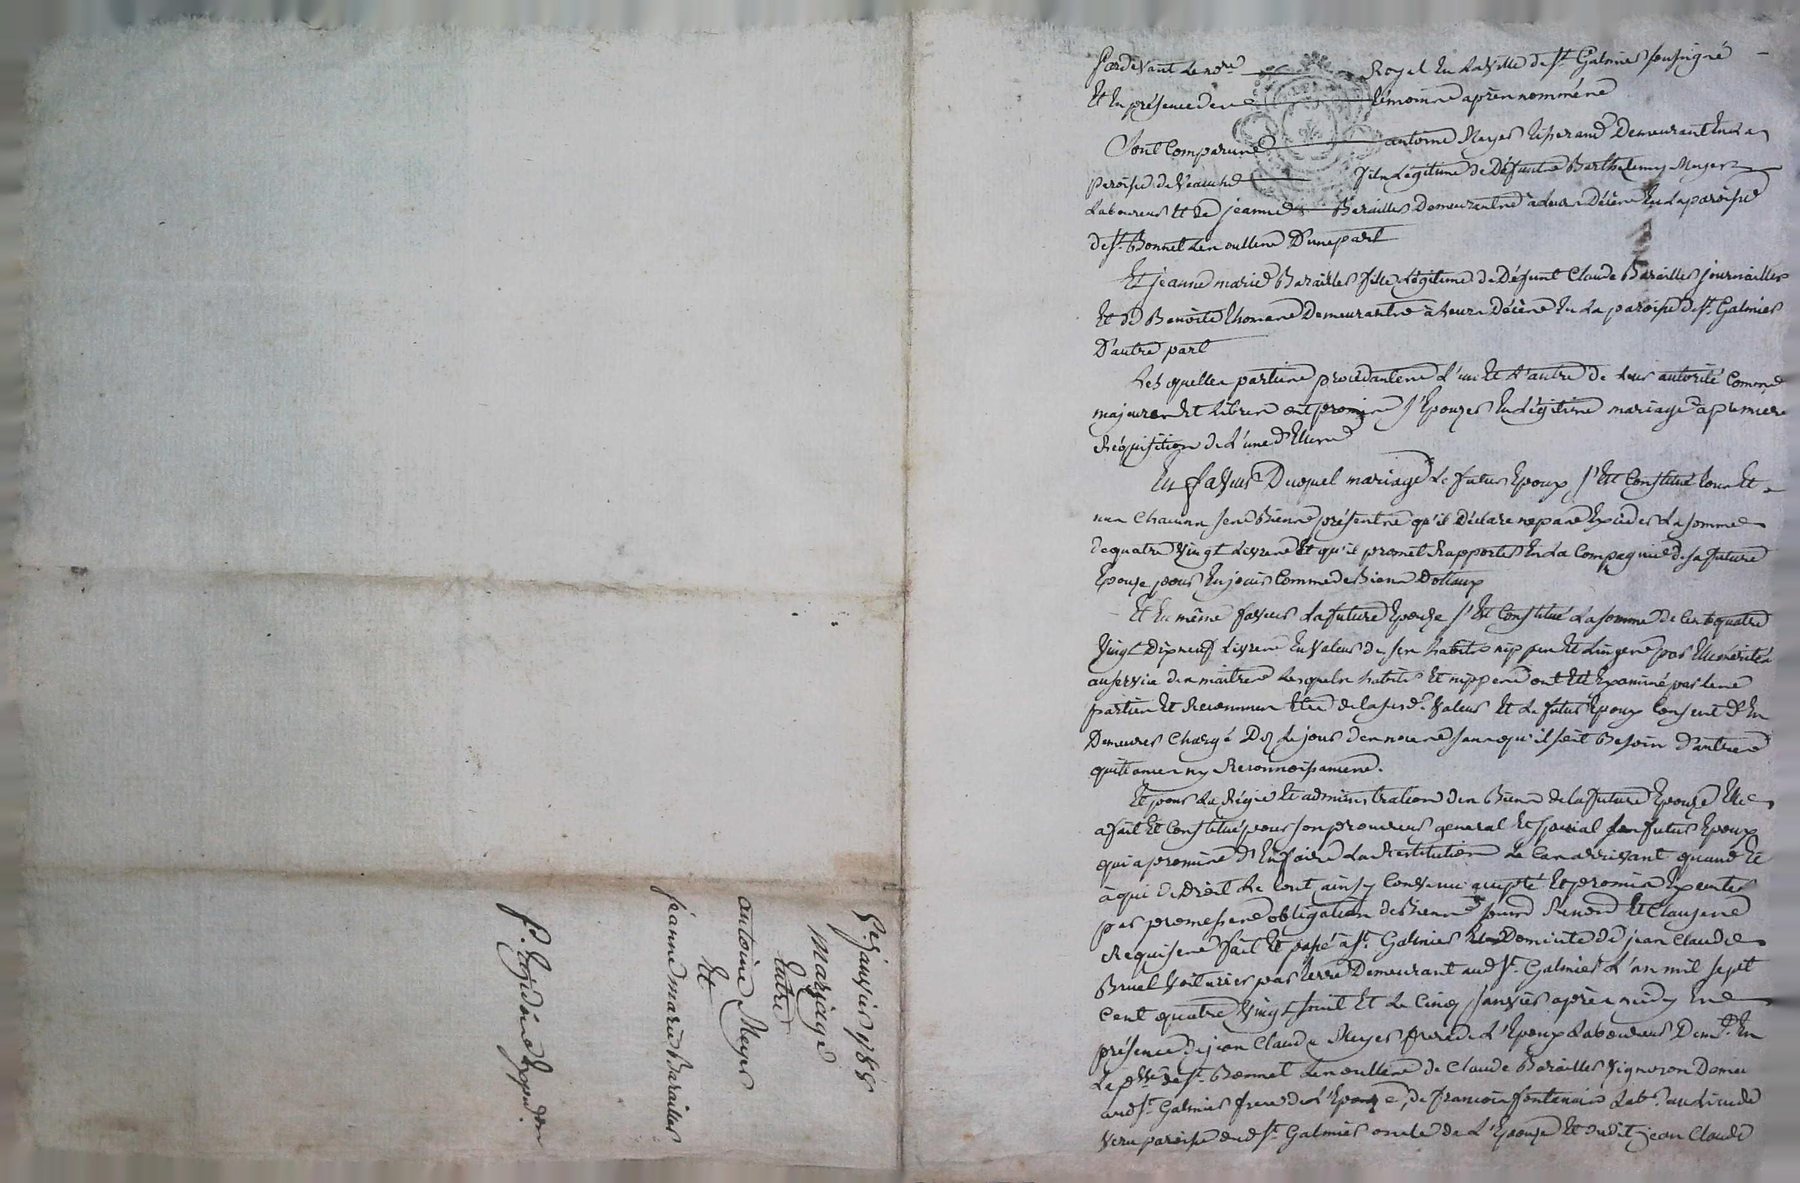 Pardevant Le no.re Royal En La Ville de St. Galmier soussigné
Et En présence des témoins après nommés
Sont Comparus antoine Meyer tisserand Demeurant En La
paroisse de Veauche fils Légitime de Défunts Barthelemy Meyer
Laboureur Et de jeanne Barailler Demeurants à Leurs Décès En La paroisse
de St. Bonnet Les oulles D'une part
Et jeanne marie Barailler fille Légitime de Défunt Claude Barailler journailler
Et de Benoite Thomas Demeurants à Leurs Décès En La paroisse de St. Galmier
D'autre part
Les quelles parties procédantes L'un Et L'autre de Leur autorité Comme
majeures Et Libres ont promis s'Epouzer En Légitime mariage à première
Réquisition de L'une d'Elles
En faveur Duquel mariage Le futur Epoux s'Est Constitué tous Et
uns Chacuns ses Biens présents qu'il Déclare ne pas Excéder La somme
de quatre Vingt Livres Et qu'il promet Rapporter En La Compagnie de sa future
Epouse pour En jouir Comme de Biens Dotaux
Et En même faveur La future Epouze s'Est Constitué La somme de Cent quatre
Vingt Dix neuf Livres En Valeur de ses habits nippes Et Linges par Elle
au service des maitres Lesquels habits Et nippes ont Eté Examiné par Les
parties Et Reconnus Etre de la susd.e Valeur Et Le futur Epoux Consent d'En
Demeurer Chargé Dez Le jour des noces sans qu'il soit Besoin d'autres
quitances ny Reconnoissances.
Et pour La Régie Et administration des Biens de la future Epouze Elle
a fait Et Constitué pour son procureur general Et special son futur Epoux
qui a promis d'En faire La Restitution Le Cas arrivant quand Et
à qui de Droit Le tout ainsy Convenu accepté Et promis Executer
par promesses obligation de Biens soumd Renond Et Clauses
Requises fait Et passé à St. Galmier Domicile de jean Claude
Bruel Voiturier par terre Demeurant aud St. Galmier L'an mil sept
cent quatre Vingt huit Et Le Cinq Janvier après midy En
présence de jean Claude Meyer frere de L'Epoux Laboureur Dem.t En
La p.sse de St. Bonnet Les oulles de Claude Barailler Vigneron Demeu
aud St. Galmier frere de L'Epouze, de francois fontanais Lab.r au Lieu de
paroisse dud St. Galmier oncle de L'Epouse Et dudit jean Claude
5e. janvier 1788
Mariage
Entre
antoine Meyer
Et
jeanne marie Barailler